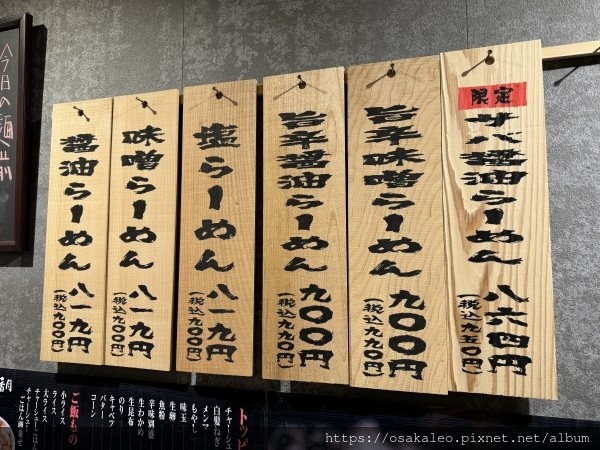 限定
サバ醤油らーめん 八六四円
(税込九五〇円)
旨辛味噌らーめん 九〇〇円
(税込九九〇円)
旨辛醤油らーめん 九〇〇円
(税込九九〇円)
塩らーめん 八一九円
(税込九〇〇円)
味噌らーめん 八一九円
(税込九〇〇円)
醤油らーめん 八一九円
(税込九〇〇円)
今日の麺
トッピ
チャーシュ
白髪ねぎ
メンマ
もやし
味玉
生卵
魚粉
辛味別盛
生わかめ
生昆布
のり
キャベツ
バター
コーン
ご飯もの
小ライス
ライス
大ライス
チャーシューごはん
https://osakaleo.pixnet.net/album